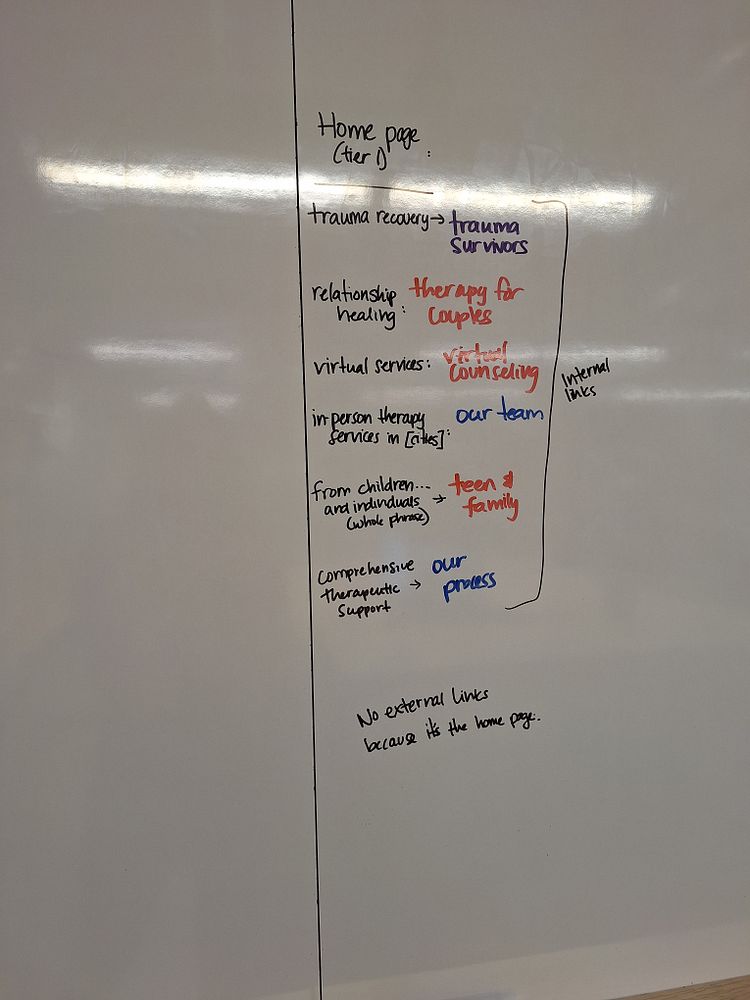 Home page
(tier 1) :
trauma recovery → trauma
survivors
relationship therapy for
healing : couples
virtual services: virtual
counseling
in-person therapy our team
services in [cities]:
from children... → teen &
and individuals family
(whole phrase)
comprehensive our
therapeutic → process
support
Internal
links
No external links
because it's the home page.